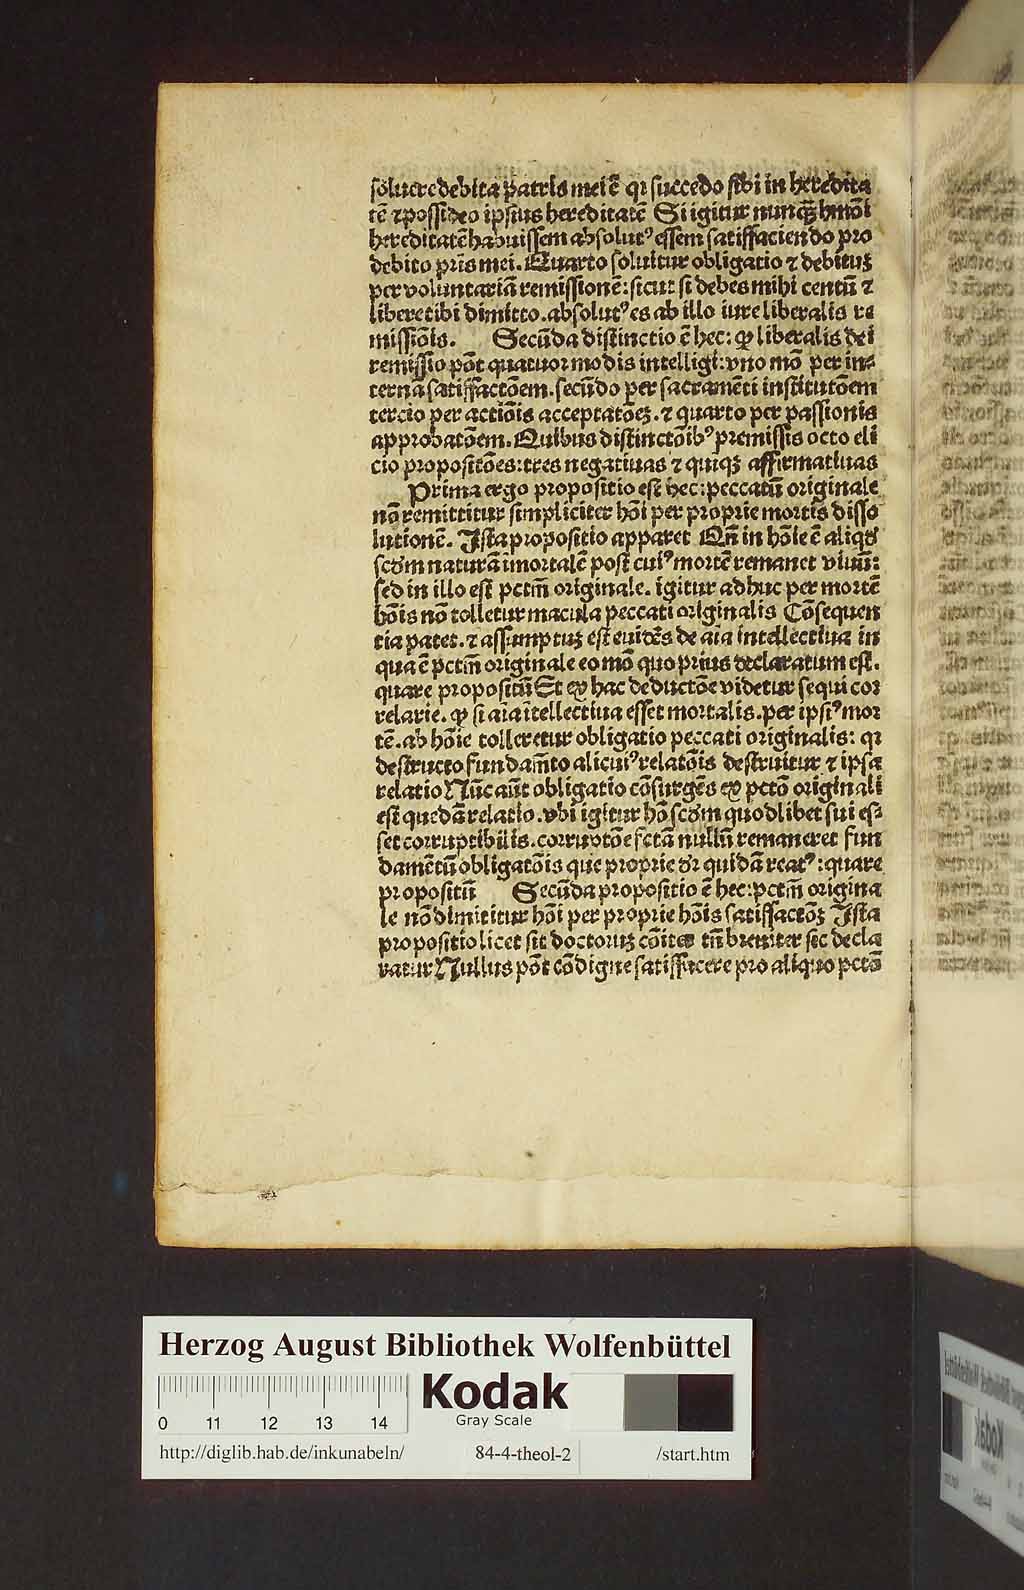 soluere debita patris mei ē qꝛ succedo sibi in heredita
tē ⁊ possideo ipsius hereditatē Si igitur nunqꝫ hmōi
hereditatē habuissem absolutꝰ essem satiffaciendo pro
debito pr̄is mei. Quarto soluitur obligatio ⁊ debituꝫ
per voluntariā remissionē: sicut si debes mihi centū ⁊
libere tibi dimitto. absolutꝰ es ab illo iure liberalis re
missiōis. Secūda distinctio ē hec: ꝙ liberalis dei
remissio pōt quatuor modis intelligi: vno mō per in⸗
ternā satiffactōem. secūdo per sacramēti institutōem
tercio per actiōis acceptatōeꝫ. ⁊ quarto per passionis
approbatōem. Quibus distinctōibꝰ premissis octo eli
cio propositōes: tres negatiuas ⁊ quinqꝫ affirmatiuas
Prima ergo propositio est hec: peccatū originale
nō remittitur simpliciter hōi per proprie mortis disso
lutionē. Ista propositio apparet Qm̄ in hōie ē aliqd̓
scd̓m naturā imortalē post cuiꝰ mortē remanet viuū:
sed in illo est pctm̄ originale. igitur adhuc per mortē
hōis nō tolletur macula peccati originalis Cōsequen
tia patet. ⁊ assumptuꝫ est euidēs de aīa intellectiua in
qua ē pctm̄ originale eo mō quo prius declaratum est.
quare propositū Et ex hac deductōe videtur sequi cor
relarie. ꝙ si aīa ītellectiua esset mortalis. per ipsiꝰ mor
tē. ab hōie tolleretur obligatio peccati originalis: qꝛ
destructo fundamēto alicuiꝰ relatōis destruitur ⁊ ipsa
relatio Nūc aūt obligatio cōsurgēs ex pctō originali
est quedā relatio. vbi igitur hō scd̓m quodlibet sui es⸗
set corruptibilis. corruptōe fctā nullū remaneret fun
damētū obligatōis que proprie dr̄ quidā reatꝰ: quare
propositū Secūda propositio ē hec: pctm̄ origina
le nō dimititur hōi per proprie hōis satiffactōꝫ Ista
propositio licet sit doctoruꝫ cōiter tn̄ breuiter sic decla
ratur Nullus pōt cōdigne satiffacere pro aliquo pctō
Herzog August Bibliothek Wolfenbüttel
Kodak
Gray Scale
0 11 12 13 14
http://diglib.hab.de/inkunabeln/ 84-4-theol-2 /start.htm